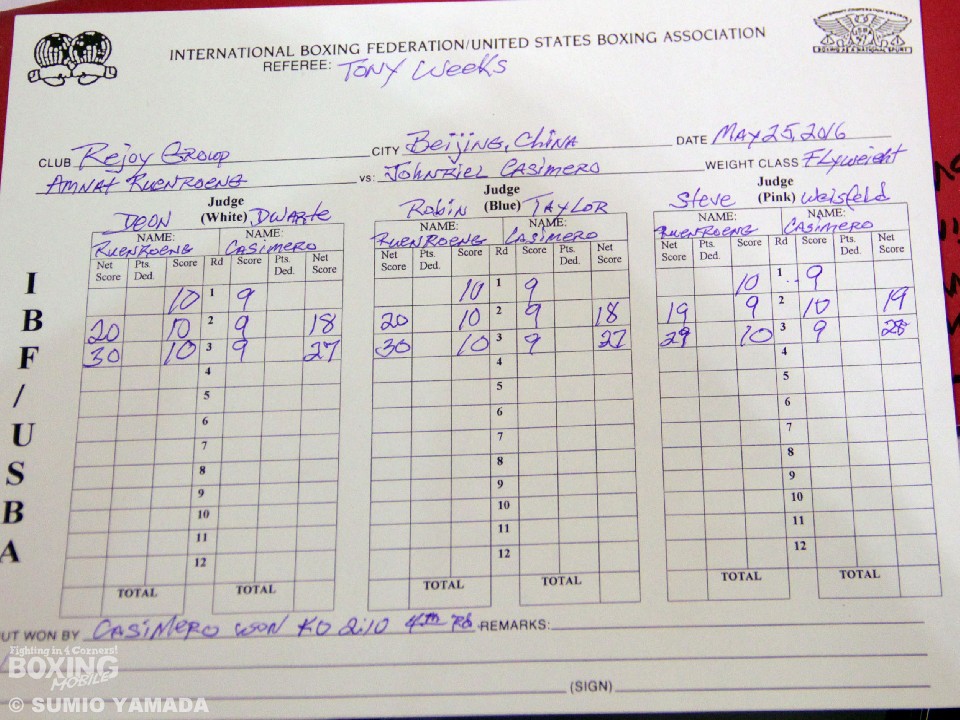 INTERNATIONAL BOXING FEDERATION/UNITED STATES BOXING ASSOCIATION
REFEREE: Tony Weeks
CLUB Rejoy Group CITY Beijing, China DATE May 25, 2016
Amnat Ruenroeng vs: Johnriel Casimero WEIGHT CLASS Flyweight
Judge Judge Judge
Deon (White) Dwarte Robin (Blue) Taylor Steve (Pink) Weisfeld
NAME: NAME: NAME: NAME: NAME: NAME:
Ruenroeng Casimero Ruenroeng Casimero Ruenroeng Casimero
Net Score Pts. Ded. Score Rd Score Pts. Ded. Net Score Net Score Pts. Ded. Score Rd Score Pts. Ded. Net Score Net Score Pts. Ded. Score Rd Score Pts. Ded. Net Score
10 1 9 10 1 9 10 1 9
20 10 2 9 18 20 10 2 9 18 19 9 2 10 19
30 10 3 9 27 30 10 3 9 27 29 10 3 9 28
4 4 4
5 5 5
6 6 6
7 7 7
8 8 8
9 9 9
10 10 10
11 11 11
12 12 12
TOTAL TOTAL TOTAL TOTAL TOTAL TOTAL
IBF/USBA
UT WON BY Casimero won KO 2:10 4th Rd REMARKS:
(SIGN)
Fighting in 4 Corners!
BOXING
MOBILE
© SUMIO YAMADA
BOXING AS A NATIONAL SPORT